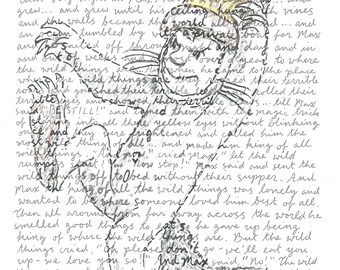 grew... and grew until his ceiling hung with vines
and the walls became the world all around... and
an ocean tumbled by with a private boat for Max
and sailed off through night and day and in
and out over a year to where
the wild things to the place
where wild things are their terrible
roars gnashed their terrible
eyes showed their terrible claws... till Max
said "BE STILL!" and tamed them with the magic trick
of into all their yellow eyes without blinking
once and they were frightened and called him the
most wild thing of all and made him king of all
wild things. "And now," cried Max, "let the wild
rumpus start!" "Now stop!" Max said and sent the
wild things off to bed without their supper. And
Max the king of all the wild things was lonely and
wanted to be where someone loved him best of all.
Then all around from far away across the world he
smelled good things to eat so he gave up being
king of where the wild things are. But the wild
things cried, "Oh please don't go - we'll eat you
up - we love you so!" And Max said, "No!" The wild